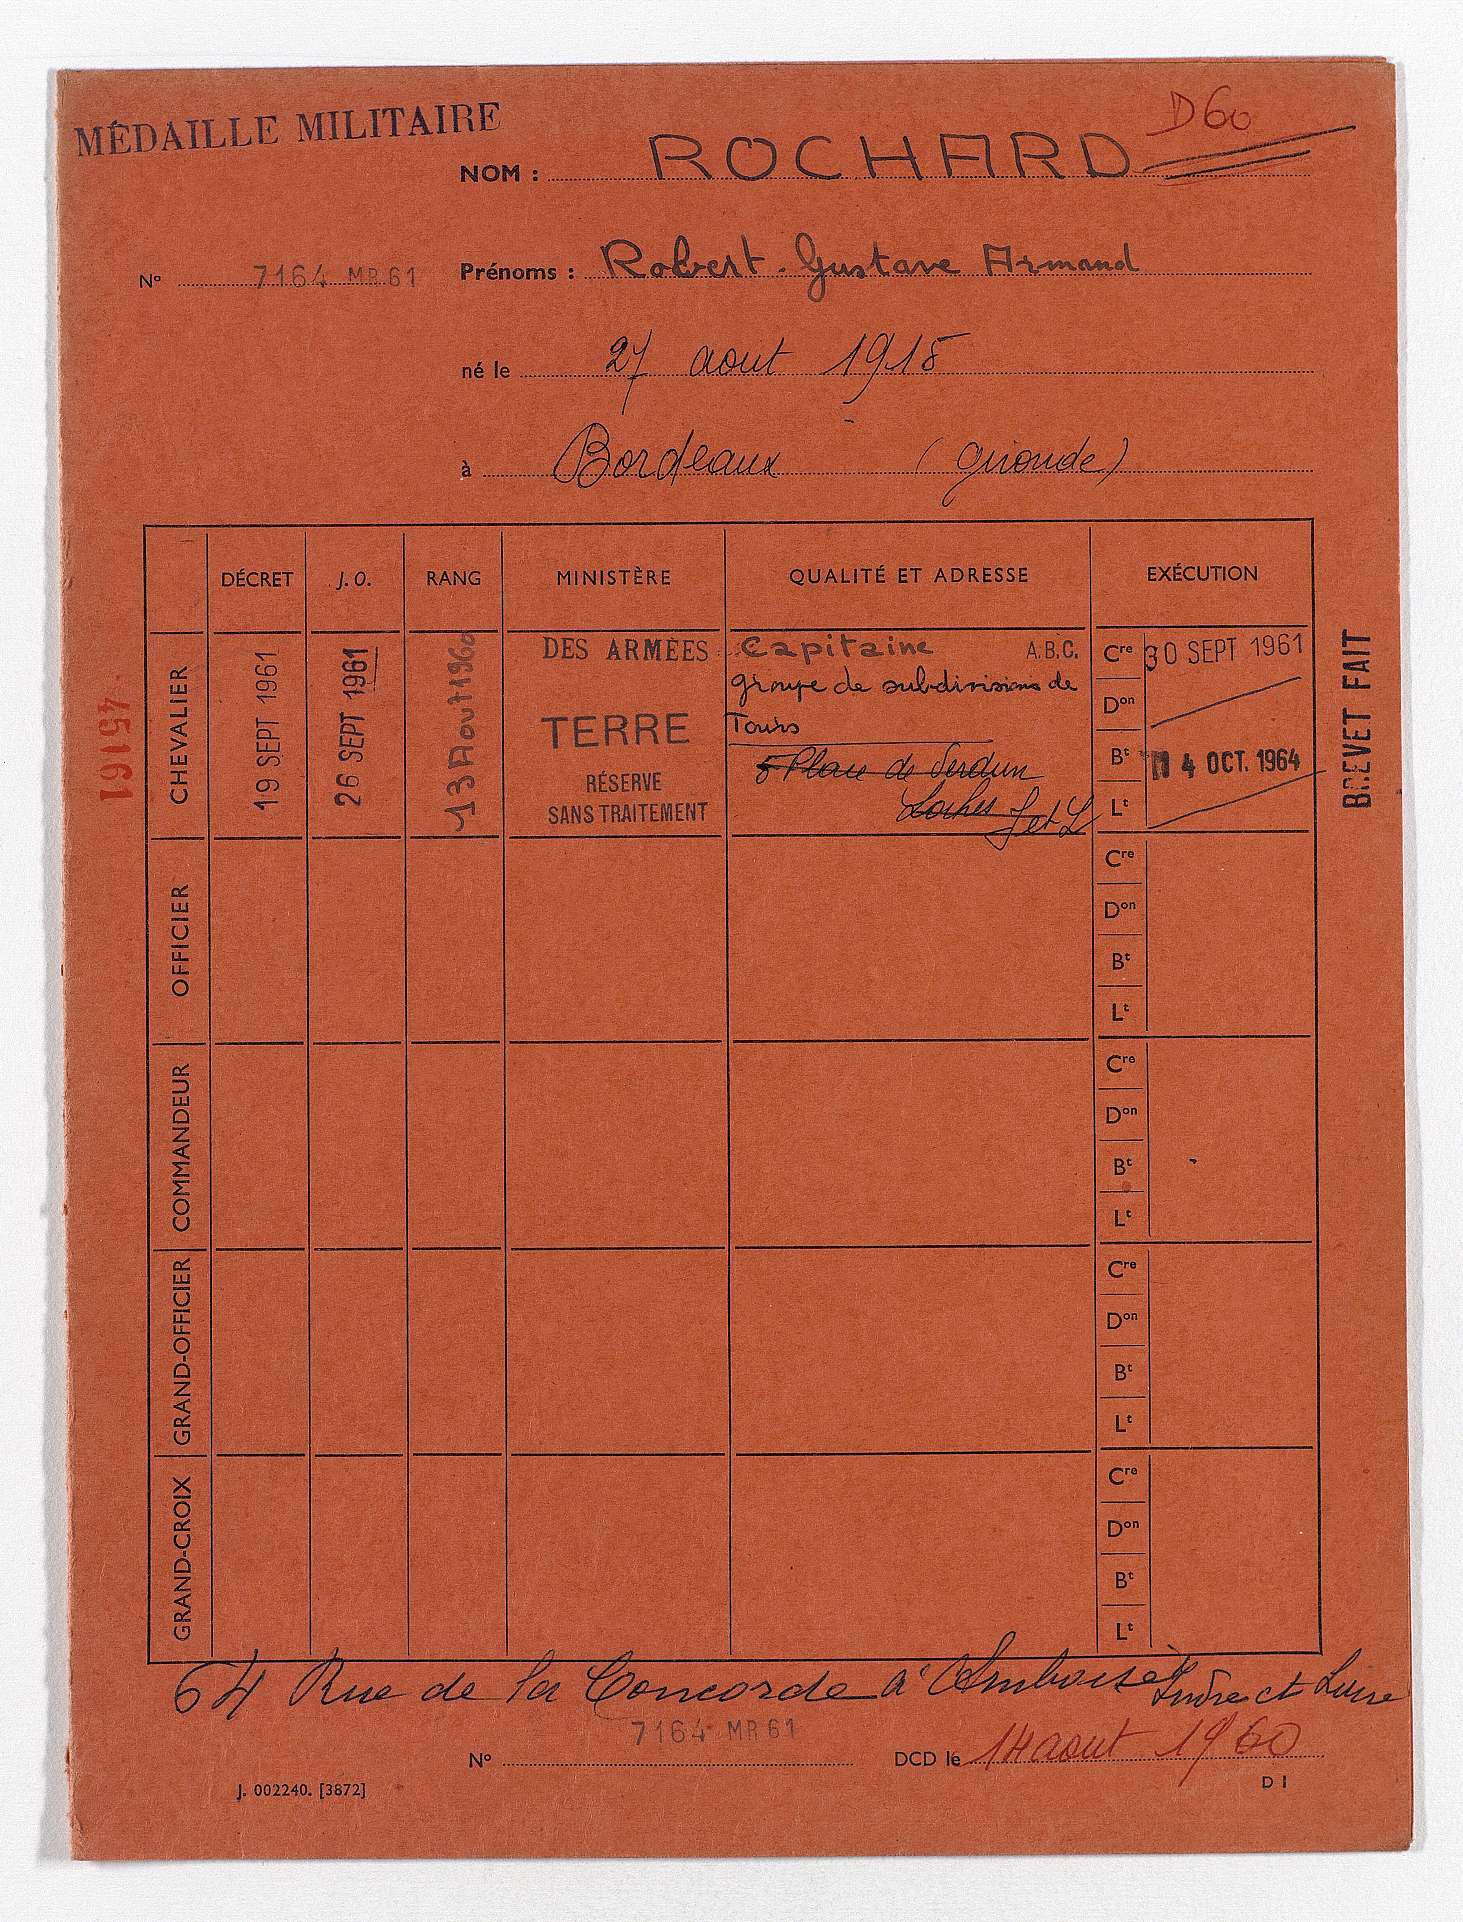 MÉDAILLE MILITAIRE
D60
NOM : ROCHARD
N° 7164 MR 61
Prénoms : Robert. Gustave Armand
né le 27 aout 1918
à Bordeaux (Gironde)
DÉCRET J. O. RANG MINISTÈRE QUALITÉ ET ADRESSE EXÉCUTION
CHEVALIER
19 SEPT 1961
26 SEPT 1961
13 Aout 1960
DES ARMÉES
TERRE
RÉSERVE
SANS TRAITEMENT
Capitaine A.B.C.
groupe de subdivisions de
Tours
5 Place de Verdun
Loches I et L
Cre 30 SEPT 1961
Don
Bt 4 OCT. 1964
Lt
BREVET FAIT
45161
OFFICIER
Cre
Don
Bt
Lt
COMMANDEUR
Cre
Don
Bt
Lt
GRAND-OFFICIER
Cre
Don
Bt
Lt
GRAND-CROIX
Cre
Don
Bt
Lt
64 Rue de la Concorde à Amboise Indre et Loire
N° 7164 MR 61
DCD le 14 aout 1960
J. 002240. [3872]
D I